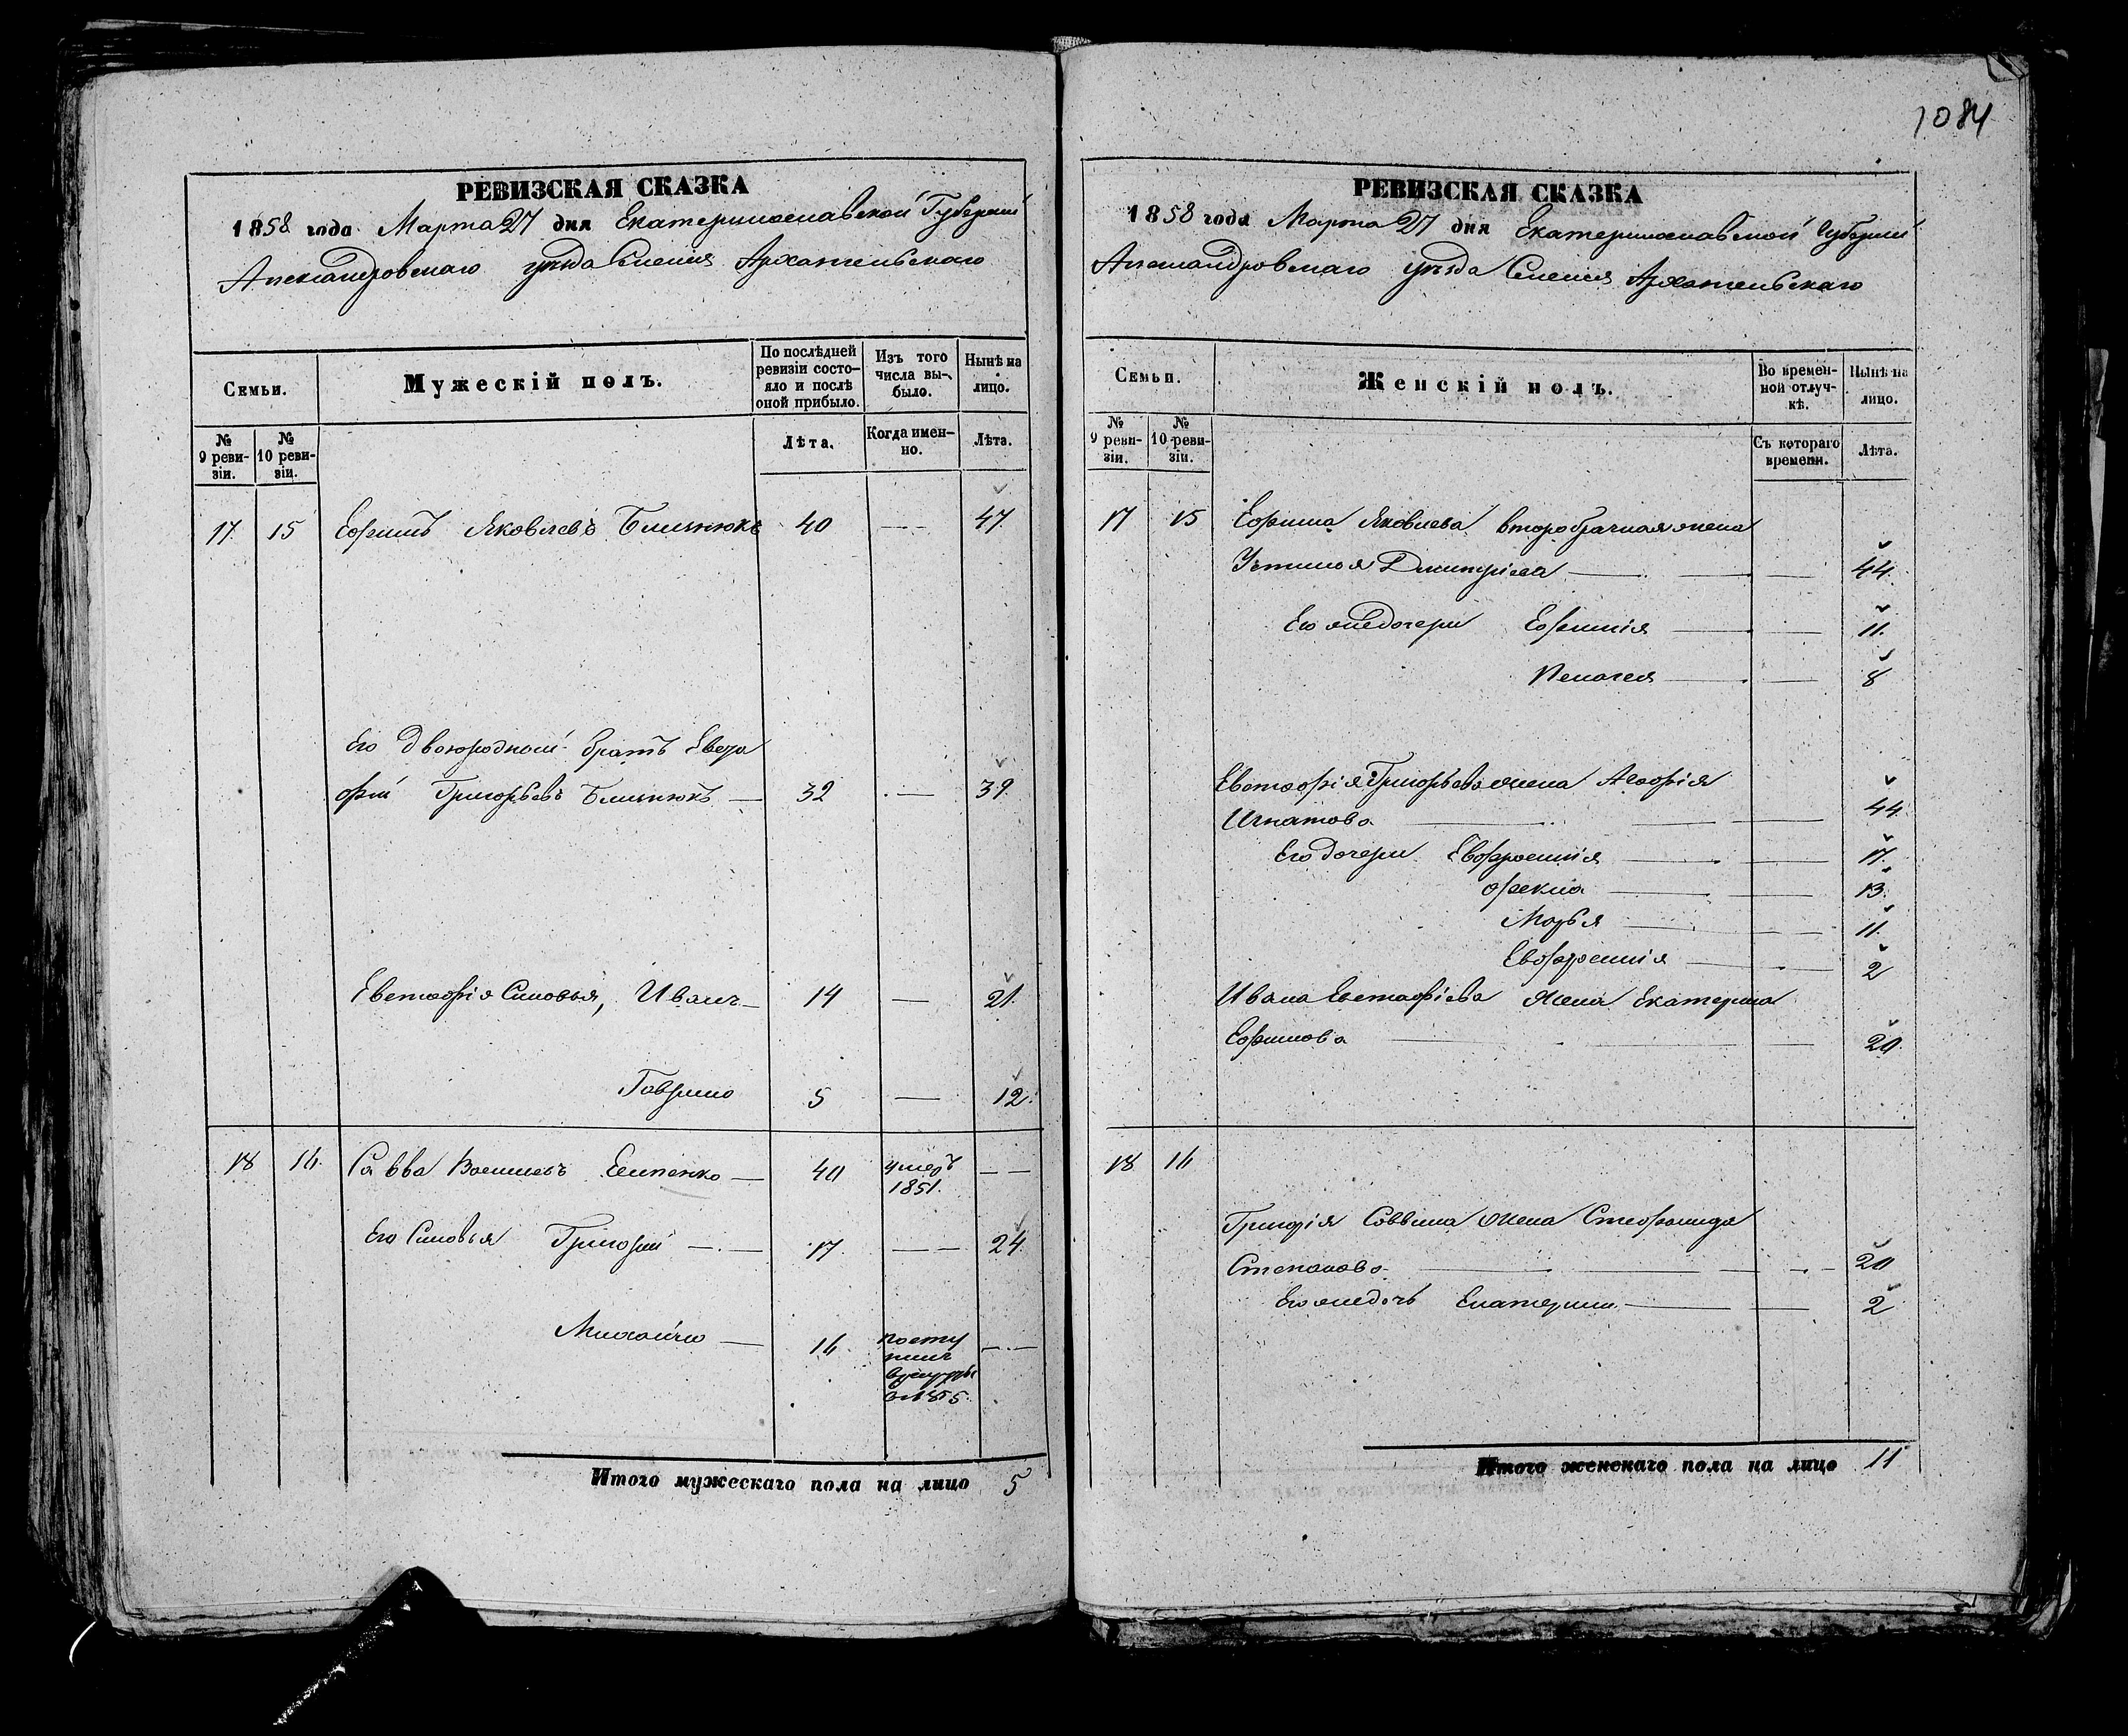 1084
РЕВИЗСКАЯ СКАЗКА
1858 года Марта 27 дня Екатеринославской Губерніи
Александровскаго уѣзда Селенія Архангельскаго
Семьи.
Мужескій полъ.
По послѣдней ревизіи состояло и послѣ оной прибыло.
Изъ того числа выбыло.
Нынѣ на лицо.
№ 9 ревизіи.
№ 10 ревизіи.
Лѣта.
Когда именно.
Лѣта.
17. 15 Ефимъ Яковлевъ 40 — 47.
Его двоюродный братъ Евста
фій Григорьевъ — 32 — 39.
Евстафія Сыновья, Иванъ — 14 — 21.
Гаврило 5 — 12.
18 16. Савва Васильевъ — 40 умеръ 1851. — —
Его Сыновья Григорій — 17. — — 24.
Михайло — 16 посту
пилъ
1855. —
Итого мужескаго пола на лицо 5
РЕВИЗСКАЯ СКАЗКА
1858 года Марта 27 дня Екатеринославской Губерніи
Александровскаго уѣзда Селенія Архангельскаго
Семьи.
Женскій полъ.
Во временной отлучкѣ.
Нынѣ на лицо.
№ 9 ревизіи.
№ 10 ревизіи.
Съ котораго времени.
Лѣта.
17 15 Ефима Яковлева второбрачная жена
Устинья Дмитріева — 44.
Его же дочери Ефимія — 11.
Пелагея — 8
Евстафія Григорьева жена Агафія
Игнатова — 44.
Его дочери Евфросинія — 17.
Фекла — 13.
Марья — 11.
Евфросинія — 2
Ивана Евстафіева жена Екатерина
Ефимова — 20.
18 16
Григорія Саввина жена Стефанида
Степанова — 20
Его же дочь Екатерина — 2
Итого женскаго пола на лицо 11